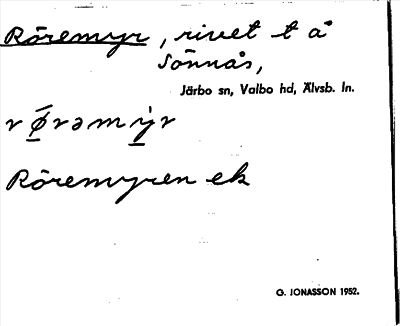 Röremyr, rivet t å
Sönnäs,
Järbo sn, Valbo hd, Älvsb. ln.
rǿrəmẏr
Röremyren ek
G. JONASSON 1952.